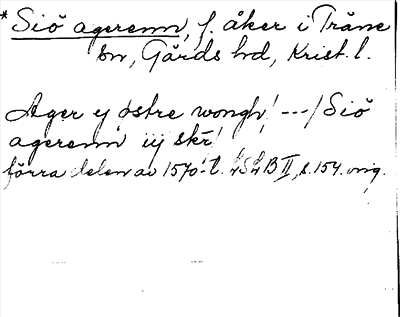 *Siö agerenn, f. åker i Träne
sn, Gärds hd, Krist. l.
Ager ej östre wongh! ---/ Siö
agerenn iij skr!
förra delen av 1570-t. LSLB II, s. 154. orig.